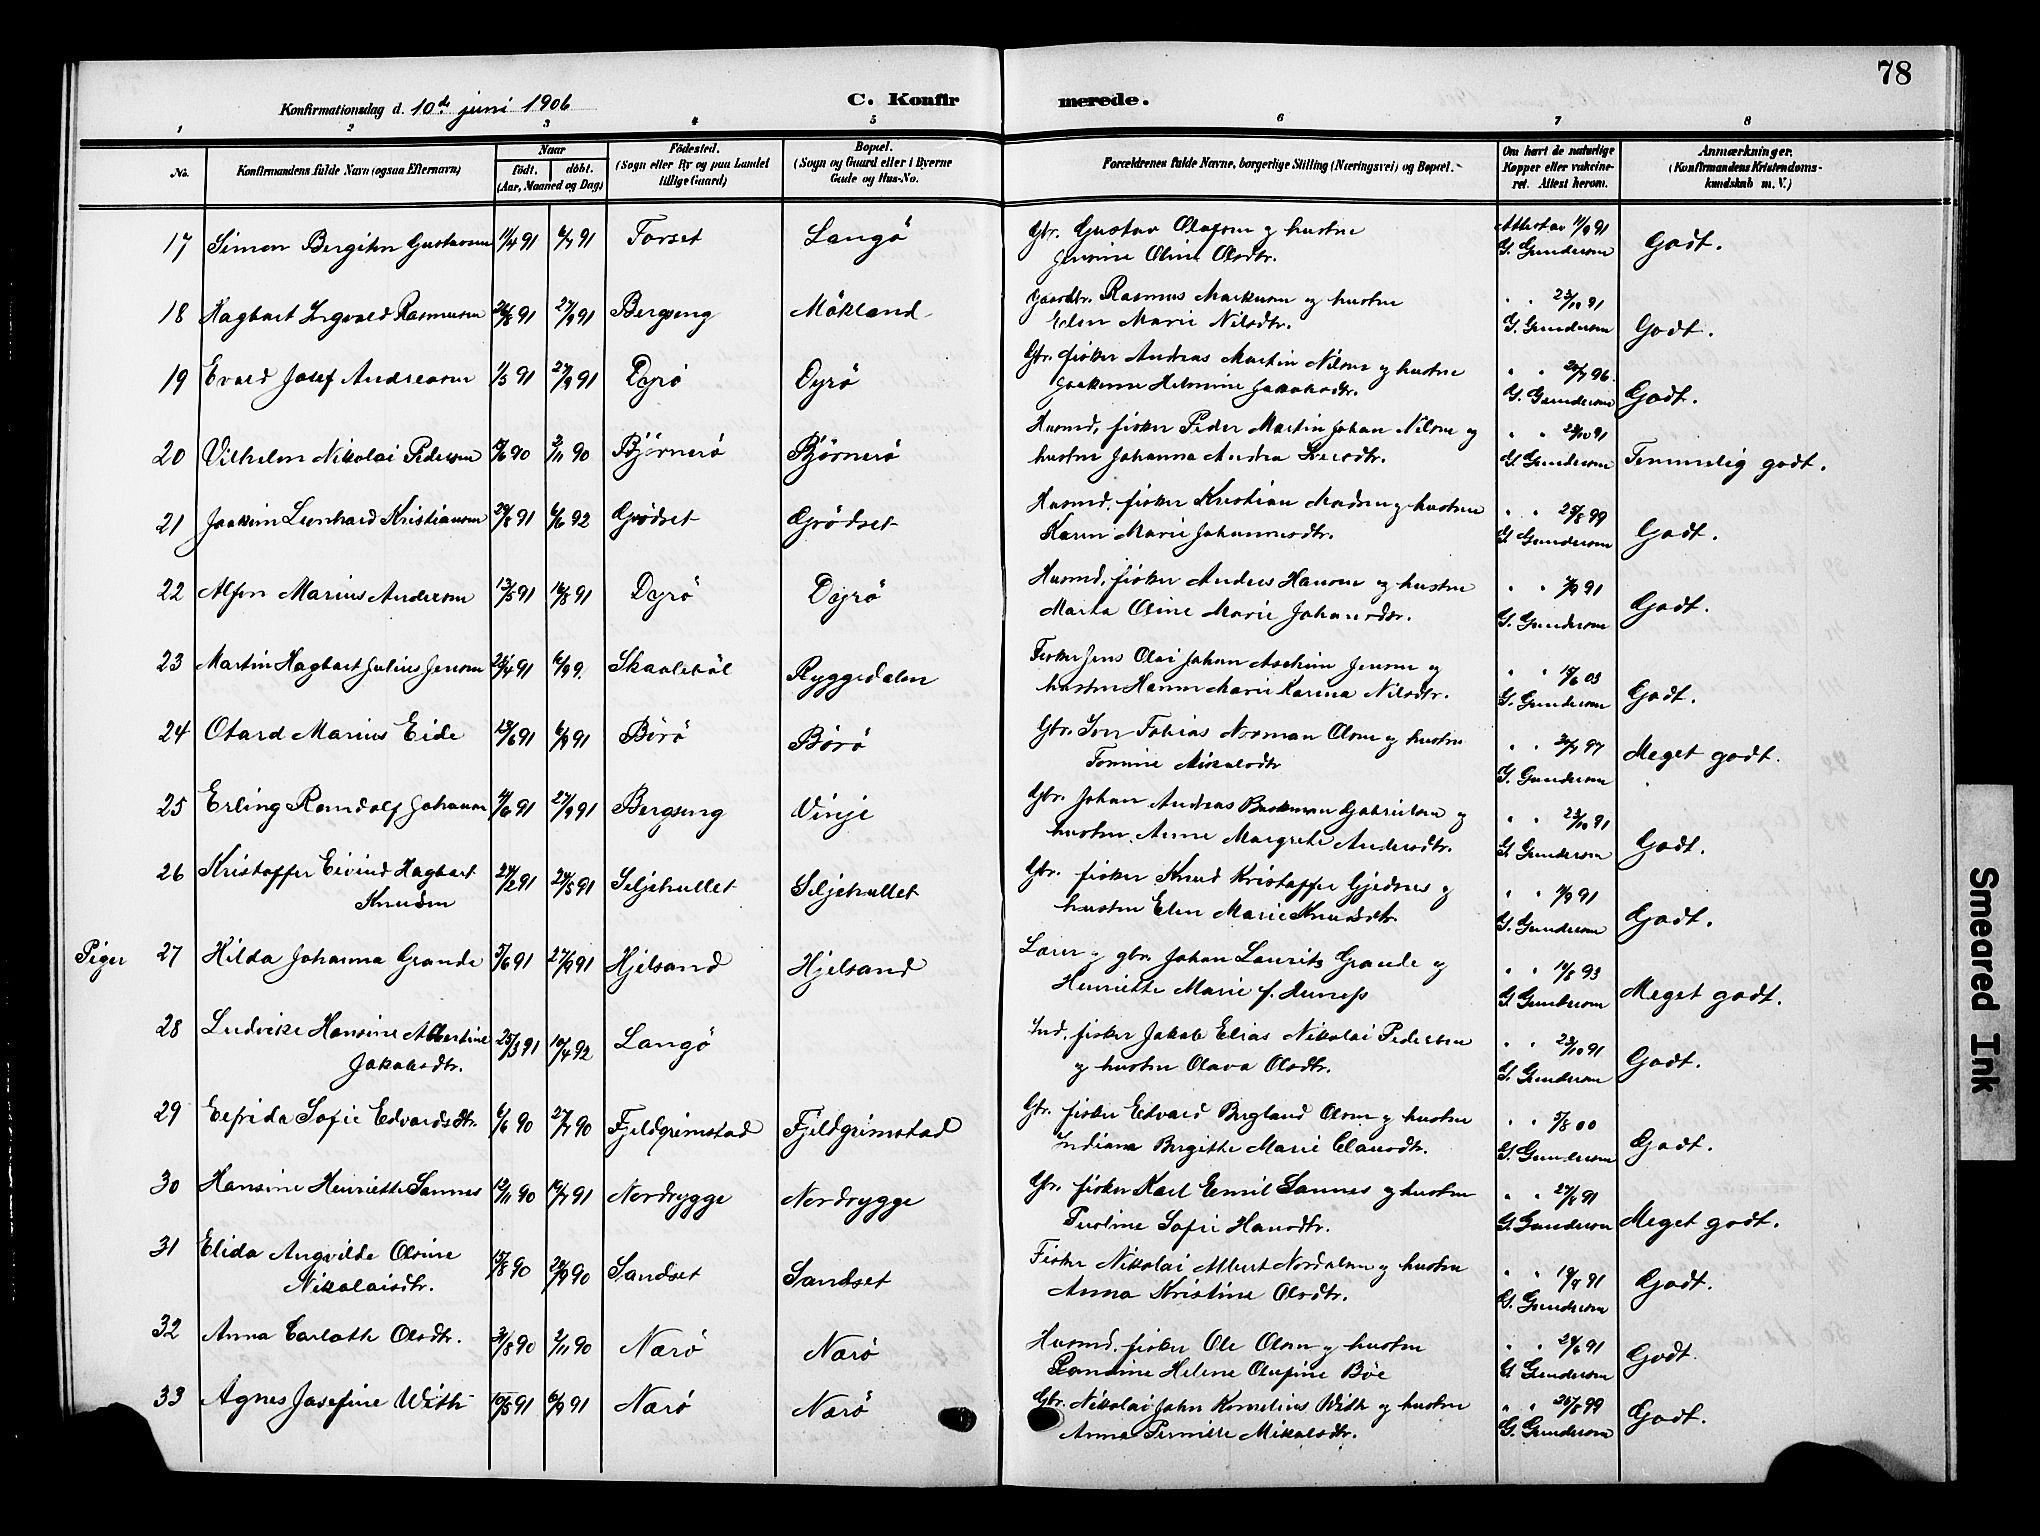 78
Konfirmationsdag d. 10de juni 1906
C. Konfirmerede.
1 2 3 4 5 6 7 8
No. Konfirmandens fulde Navn (ogsaa Efternavn) Naar født. døbt. (Aar, Maaned og Dag) Fødested. (Sogn eller By og paa Landet tillige Gaard) Bopæl. (Sogn og Gaard eller i Byerne Gade og Hus-No. Forældrenes fulde Navne, borgerlige Stilling (Næringsvei) og Bopæl. Om havt de naturlige Kopper eller vakcineret. Attest herom. Anmærkninger. (Konfirmandens Kristendomskundskab m. V.)
17 Simon Bergiton Gustavsen 11/4 91 6/7 91 Forset Langö Gbr. Gustav Olafsen og hustru Attest av 11/9 91 Godt.
Jensine Oline Olsdtr. G. Gundersen
18 Hagbart Ingvald Rasmussen 26/8 91 27/9 91 Bergseng Mökland Gaardbr. Rasmus Markusen og hustru " " 23/10 91 Godt.
Elen Marie Nilsdtr. G. Gundersen
19 Evald Josef Andreasen 1/5 91 27/9 91 Dyrö Dyrö Gbr. fisker Andreas Martin Nilsen og hustru Godt.
Helmine Jakobsdtr. G. Gundersen
20 Vilhelm Nikolai Pedersen 2/11 90 Björnerö Björnerö Husmd, fisker Peder Martin Johan Nilsen og Temmelig godt.
hustru Johanna Andrea Iversdtr. G. Gundersen
21 Joakim Leonhard Kristiansen 29/8 91 6/6 92 Grödset Grödset Husmd. fisker Kristian Madsen og hustru " " 25/8 99 Godt.
Karen Marie Johannesdtr. G. Gundersen
22 Alfon Marius Andersen 13/5 91 16/8 91 Dyrö Dyrö Husmd, fisker Anders Hansen og hustru Godt.
Marta Oline Marie Johansdtr. G. Gundersen
23 Martin Hagbart Julius Jensen 6/9 9. Skaaleböl Ryggedalen Fisker Jens Olai Johan Joakim Jensen og " " 15/6 03 Godt.
hustru Hanna Marie Karina Nilsdtr. G. Gundersen
24 Otard Marius Eide 13/6 91 6/9 91 Börö Börö Gbr. Ion Tobias Norman Olsen og hustru Meget godt.
Tomine Mikalsdtr G. Gundersen
25 Erling Randolf Johansen 27/9 91 Bergseng Vinje Gbr. Johan Andreas Gabrielsen og " " 23/10 91 Godt.
hustru Anne Margrete Andersdtr. G. Gundersen
26 Kristoffer Eivind Hagbart 27/2 91 24/5 91 Seljehullet Seljehullet Gbr. fisker Knud Kristoffer Gjednes og Godt.
Knudsen hustru Elen Marie Knudsdtr. G. Gundersen
Piger 27 Hilda Johanna Grande 5/6 91 27/9 91 Hjelsand Hjelsand Lærer og gbr. Johan Laurits Grande og " " 14/8 93 Meget godt.
Henriette Marie f. G. Gundersen
28 Ludvike Hansine Albertine 25/3 91 10/4 92 Langö Ind. fisker Jakob Elias Nikolai Pedersen " " 23/10 91 Godt.
Jakobsdtr. og hustru Olava Olsdtr. G. Gundersen
29 Elfrida Sofie Edvardsdtr. 6/6 90 27/7 90 Fjeldgrimstad Fjeldgrimstad Gbr. fisker Edvard Bergland Olsen og hustru Godt.
Indiana Birgitte Marie Clausdtr. G. Gundersen
30 Hansine Henriette Sannes 12/11 90 19/7 91 Nordrygge Nordrygge Gbr. fisker Karl Emil Sannes og hustru " " 27/8 91 Meget godt.
Peroline Sofie Hansdtr. G. Gundersen
31 Elida Angvilde Olsine 15/8 90 28/9 90 Sandset Sandset Fisker Nikolai Albert Nordalsen og hustru Godt.
Nikolaisdtr. Anna Kristine Olsdtr. G. Gundersen
32 Anna Carlotte Olsdtr. 31/8 90 2/11 90 Nærö Nærö Husmd. fisker Ole Olsen og hustru Godt.
Helene Olufine Böe G. Gundersen
33 Agnes Josefine With 10/5 91 6/9 91 Nærö Nærö Gbr. Nikolai John Kornelius With og hustru " " 25/8 99 Godt.
Anna Pernille Mikalsdtr. G. Gundersen
Smeared Ink